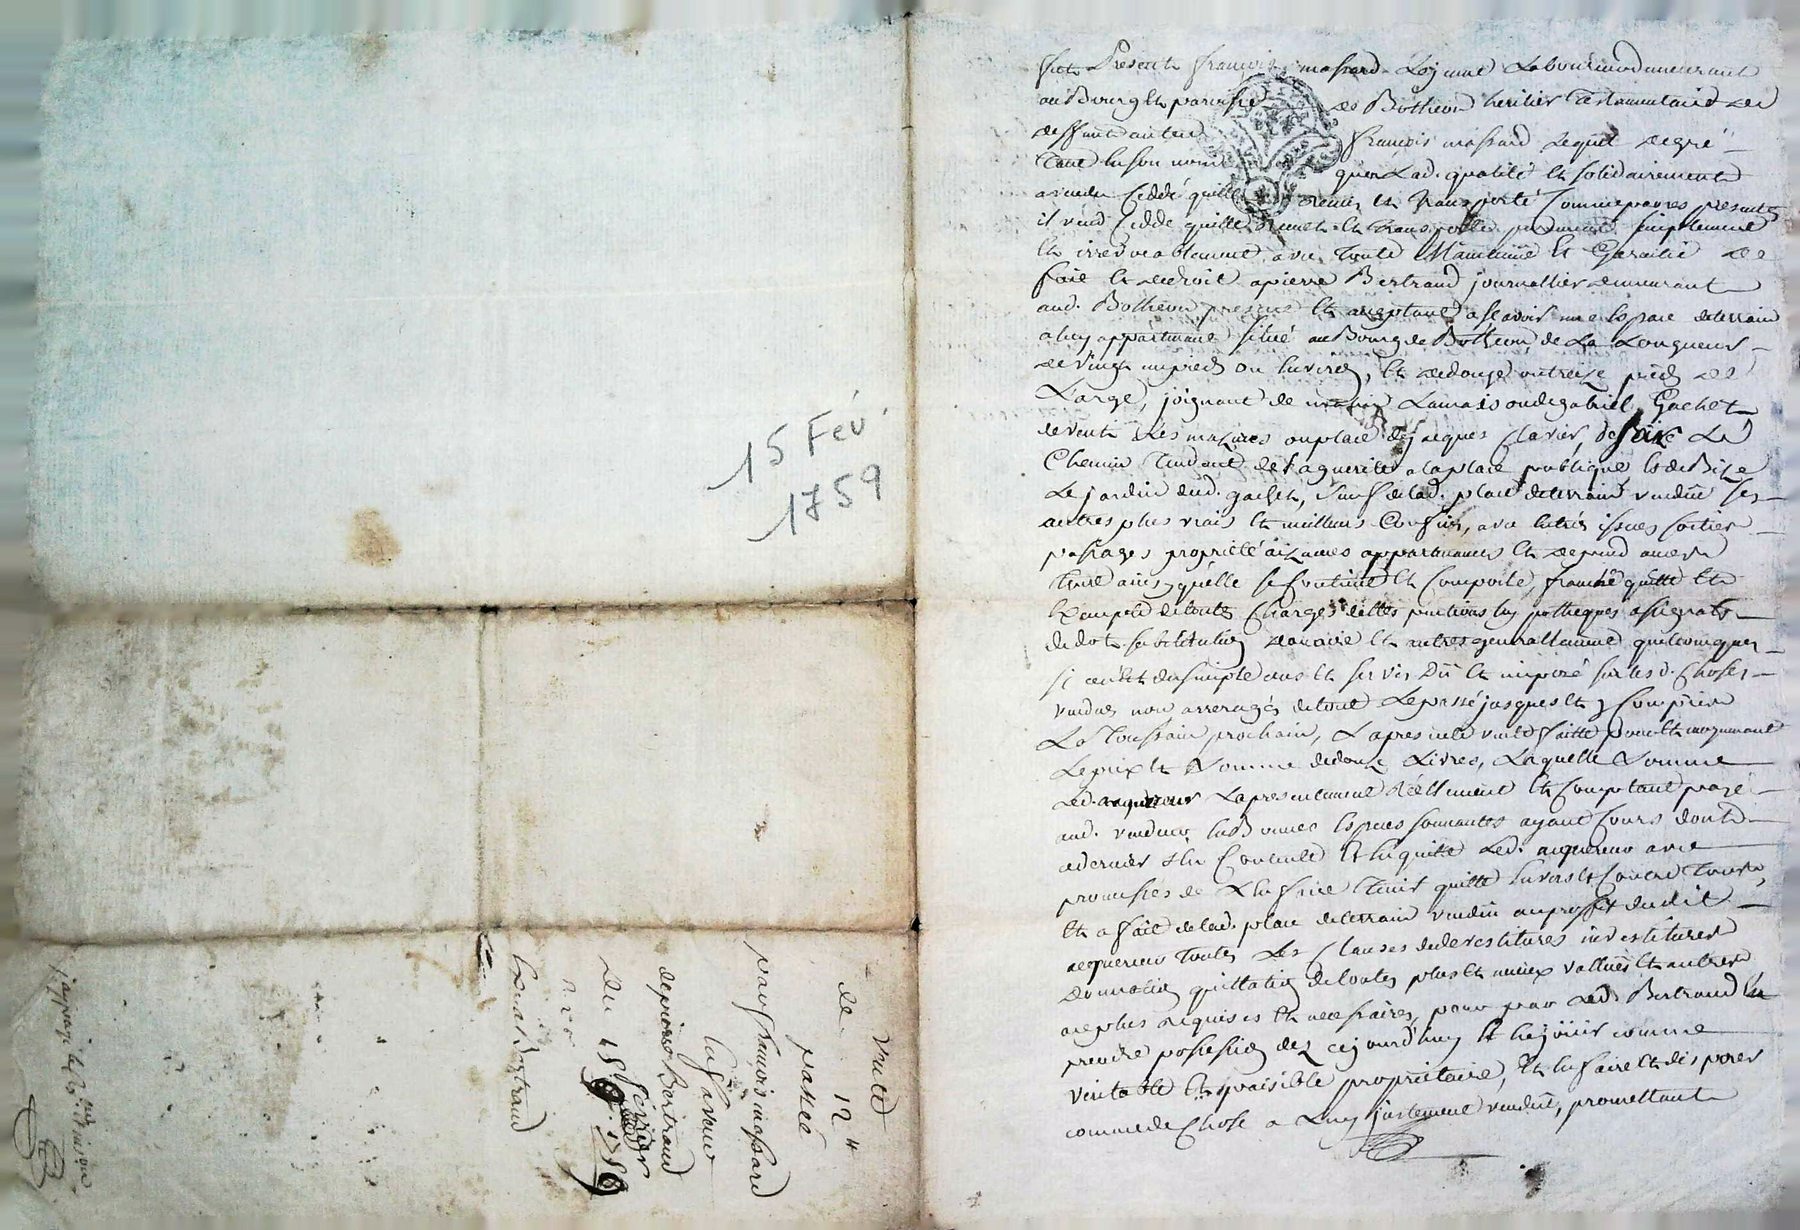 15 Fev
1759
Vente
de 12 ₶
passée
par francois massard
en faveur
de pierre Bertrand
du 15e fevrier
1759
Bertrand
fut Present françois massard Laboureur demeurant
au Bourg et paroisse de Botheon heritier testamentaire de
deffunt autre françois massard Lequel de gré
tant en son nom quen Lad. qualité et solidairement
a vendu ceddé quitté remis et transporté comme par ces presentes
il vend cedde quitte remet et transporte purement simplement
et irrevocablement avec toute Maintenue et Garantie de
fait et de droit a pierre Bertrand journallier demeurant
aud. Botheon present et acceptant a scavoir une espace de terrain
a luy appartenant situé au Bourg de Botheon de La Longueur
de vingt un pieds ou environ, et de douze ou treize pieds de
Large, joignant de matin La maison de gabriel Gachet
de vent Les mazures ou place de jacques Clavier, de soir Le
Chemin Tendant de a la place publique et de Bize
Le jardin dud. gachet, sauf de lad. place de terrain vendue ses
autres plus vrais et meilleurs Confins, avec entrées issues sorties
passages proprieté aizances appartenances et dependances
quelle se Contient et Comporte, franche quitte et
Exempte de toutes Charges dettes pentions hypotheques assignats
de dot substitution douaire et autres generallement quelconques
si ce n'est du simple cens et servis Dû et imposé sur lesd. Choses
vendues non arreragés de tout Le passé jusques et y Compris
La Toussain prochain, La presente vente faitte pour et moyennant
Le prix et somme de douze Livres, Laquelle somme
Led. acquereur La presentement réellement et Comptant payé
aud. vendeur en Bonnes Especes sonnantes ayant Cours dont
Ce dernier s'en Contente et en quitte Led. acquereur avec
promesses de L'en faire tenir quitte envers et Contre Tous,
et a fait de lad. place de terrain vendue au proffit dudit
acquereur Toutes Les Clauses de devestitures investitures
Donnation quittation de toutes plus et mieux vallues et autres
au plus requises et necessaires, pour par Led. Bertrand en
prendre possession dez cejourd'huy et en joüir comme
veritable et paisible proprietaire, et en faire et disposer
comme de Chose a Luy justement vendue, promettant